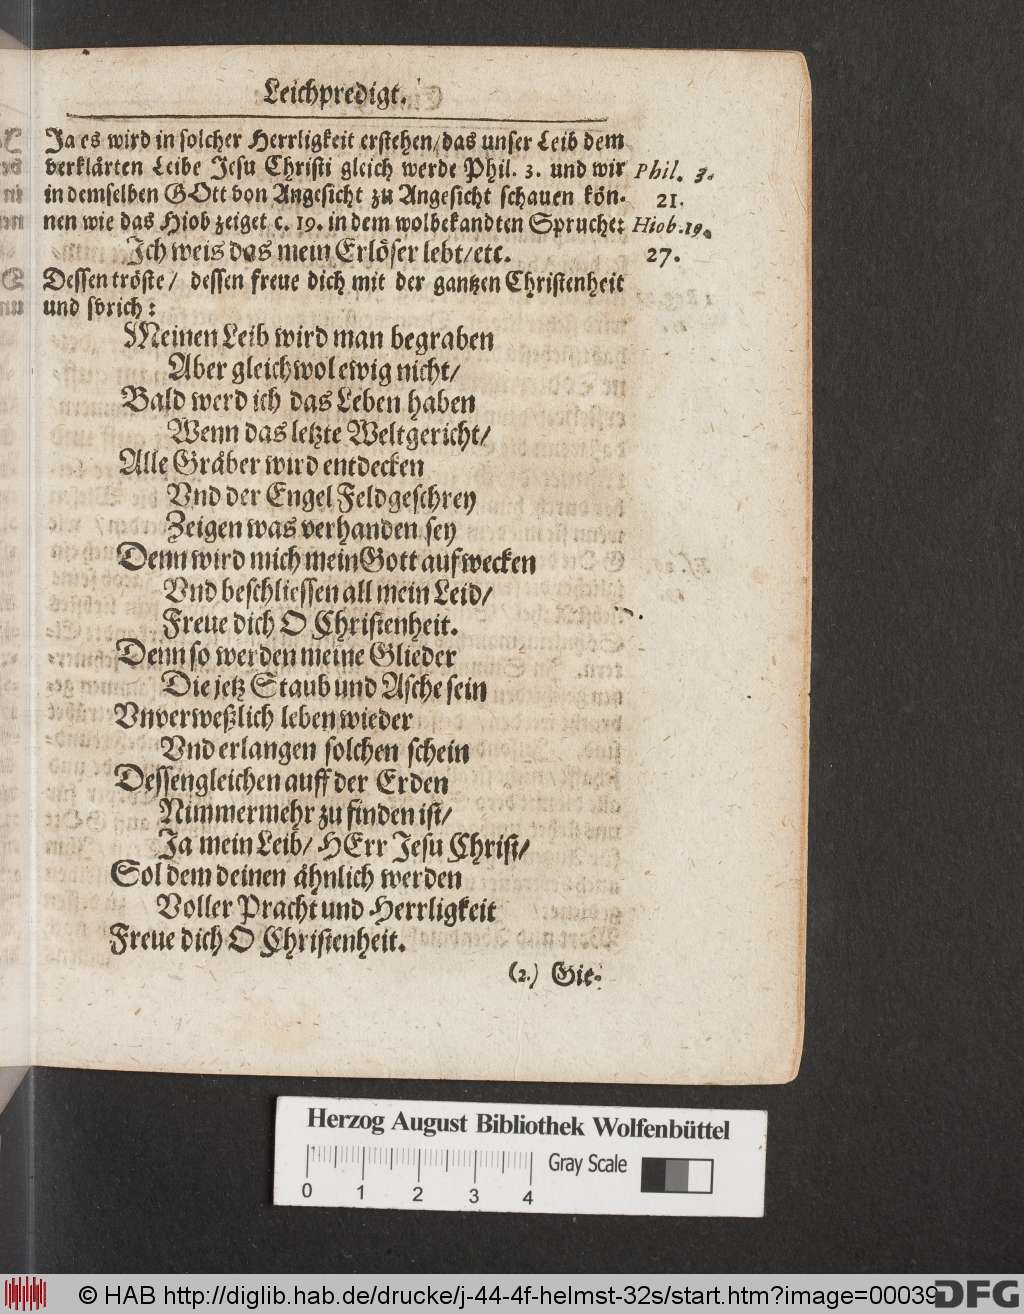 Leichpredigt.
Ja es wird in solcher Herrligkeit erstehen/das unser Leib dem
verklärten Leibe Jesu Christi gleich werde Phil. 3. und wir
Phil. 3.
in demselben GOtt von Angesicht zu Angesicht schauen kön-
21.
nen wie das Hiob zeiget c. 19. in dem wolbekandten Spruche:
Hiob.19.
Ich weis das mein Erlöser lebt/etc.
27.
Dessen tröste/ dessen freue dich mit der gantzen Christenheit
und sprich:
Meinen Leib wird man begraben
Aber gleichwol ewig nicht/
Bald werd ich das Leben haben
Wenn das letzte Weltgericht/
Alle Gräber wird entdecken
Vnd der Engel Feldgeschrey
Zeigen was verhanden sey
Denn wird mich mein Gott aufwecken
Vnd beschliessen all mein Leid/
Freue dich O Christenheit.
Denn so werden meine Glieder
Die jetz Staub und Asche sein
Vnverweßlich leben wieder
Vnd erlangen solchen schein
Dessengleichen auff der Erden
Nimmermehr zu finden ist/
Ja mein Leib/ HErr Jesu Christ/
Sol dem deinen ähnlich werden
Voller Pracht und Herrligkeit
Freue dich O Christenheit.
(2.) Gie-
Herzog August Bibliothek Wolfenbüttel
Gray Scale
0 1 2 3 4
© HAB http://diglib.hab.de/drucke/j-44-4f-helmst-32s/start.htm?image=00039
DFG